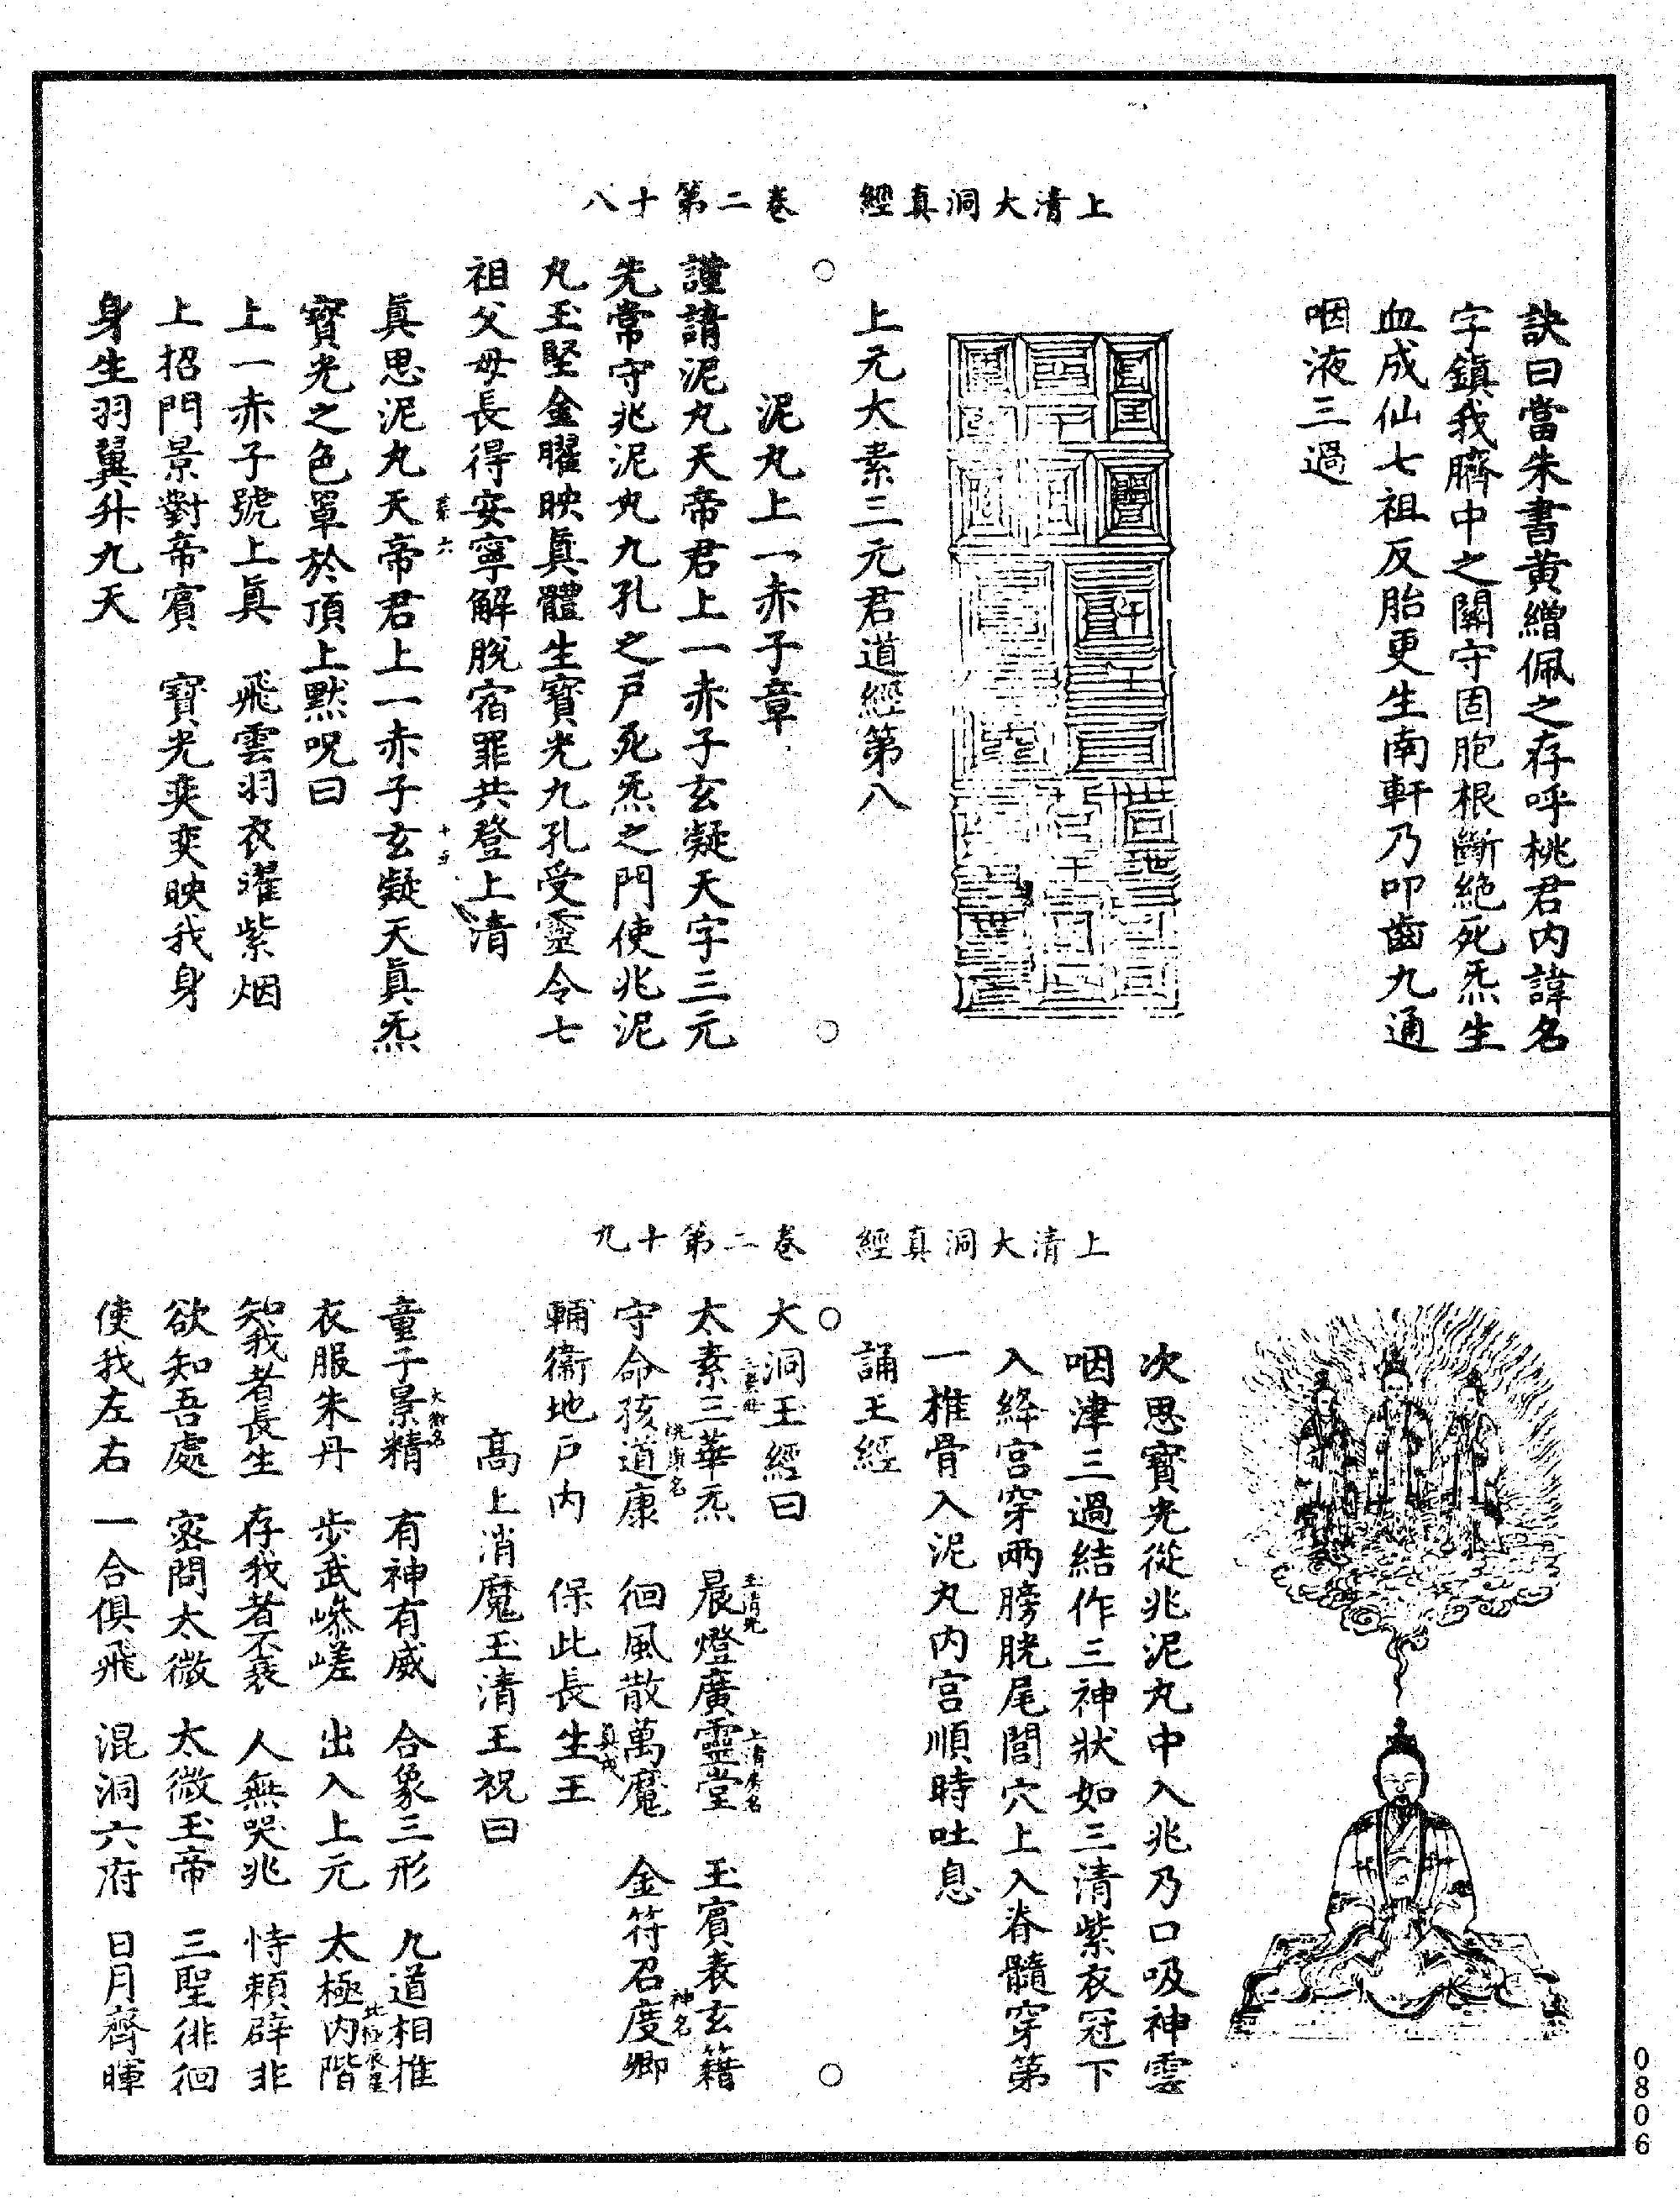 上清大洞真經　卷二第十八
訣曰當朱書黄繒佩之存呼桃君内諱名
字鎮我臍中之關守固胞根斷絶死炁生
血成仙七祖反胎更生南軒乃叩齒九通
咽液三過
上元太素三元君道經第八
泥丸上一赤子章
謹請泥丸天帝君上一赤子玄凝天字三元
先常守兆泥丸九孔之戸死炁之門使兆泥
丸玉堅金曜映真體生寶光九孔受靈令七
祖父母長得安寧解脫宿罪共登上清
真思泥丸天帝君上一赤子玄凝天真炁
寶光之色罩於頂上默呪曰
上一赤子號上真　飛雲羽衣曜紫烟
上招門景對帝賔　寶光奕奕映我身
身生羽翼升九天
上清大洞真經　卷二第十九
次思寶光從兆泥丸中入兆乃口吸神雲
咽津三過結作三神狀如三清紫衣冠下
入絳宫穿兩膀胱尾閭穴上入脊髓穿第
一椎骨入泥丸内宫順時吐息
誦玉經
大洞玉經曰
太素三華炁　晨燈廣靈堂　玉賔表玄籍
玉清光　上清房名
守命孩道康　徊風散萬魔　金符召度卿
神名
輔衞地戸内　保此長生王
高上消魔玉清王祝曰
童子景精　有神有威　合象三形　九道相推
衣服朱丹　步武嵾嵯　出入上元　太極内階
知我者長生　存我者不衰　人無哭兆　恃頼辟非
欲知吾處　密問太微　太微玉帝　三聖徘徊
使我左右　一合俱飛　混洞六府　日月齊暉
0806